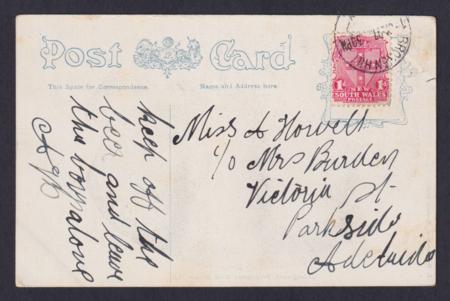 Post Card
This Space for Correspondence.
Name and Address here.
BROKEN HILL
1d 1d
NEW
SOUTH WALES
POSTAGE
keep off the
beer and leave
the boys alone
Miss A Howell
c/o Mrs Burden
Victoria St.
Parkside
Adelaide